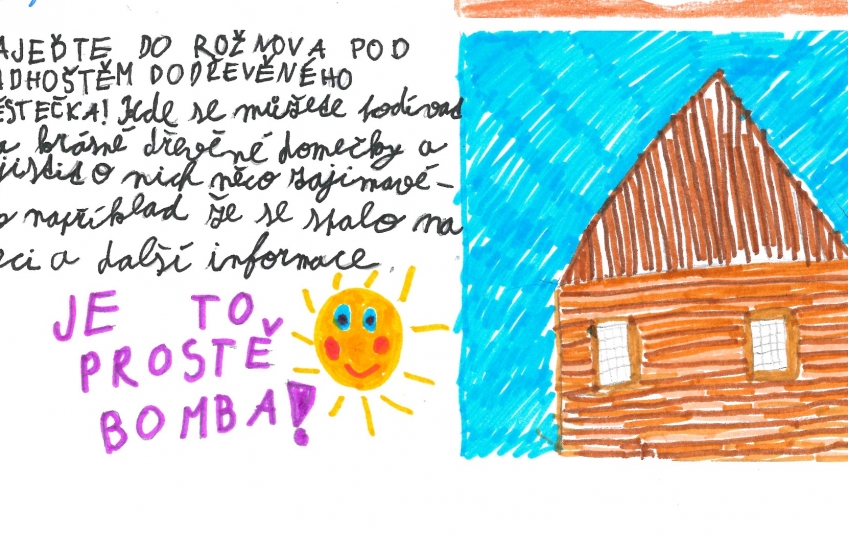 AJEĎTE DO ROŽNOVA POD
ADHOŠTĚM DO DŘEVĚNÉHO
ĚSTEČKA! Kde se můžete podívat
a krásné dřevěné domečky a
jistit o nich něco zajímavé-
o například že se stalo na
eci a další informace.
JE TO
PROSTĚ
BOMBA!